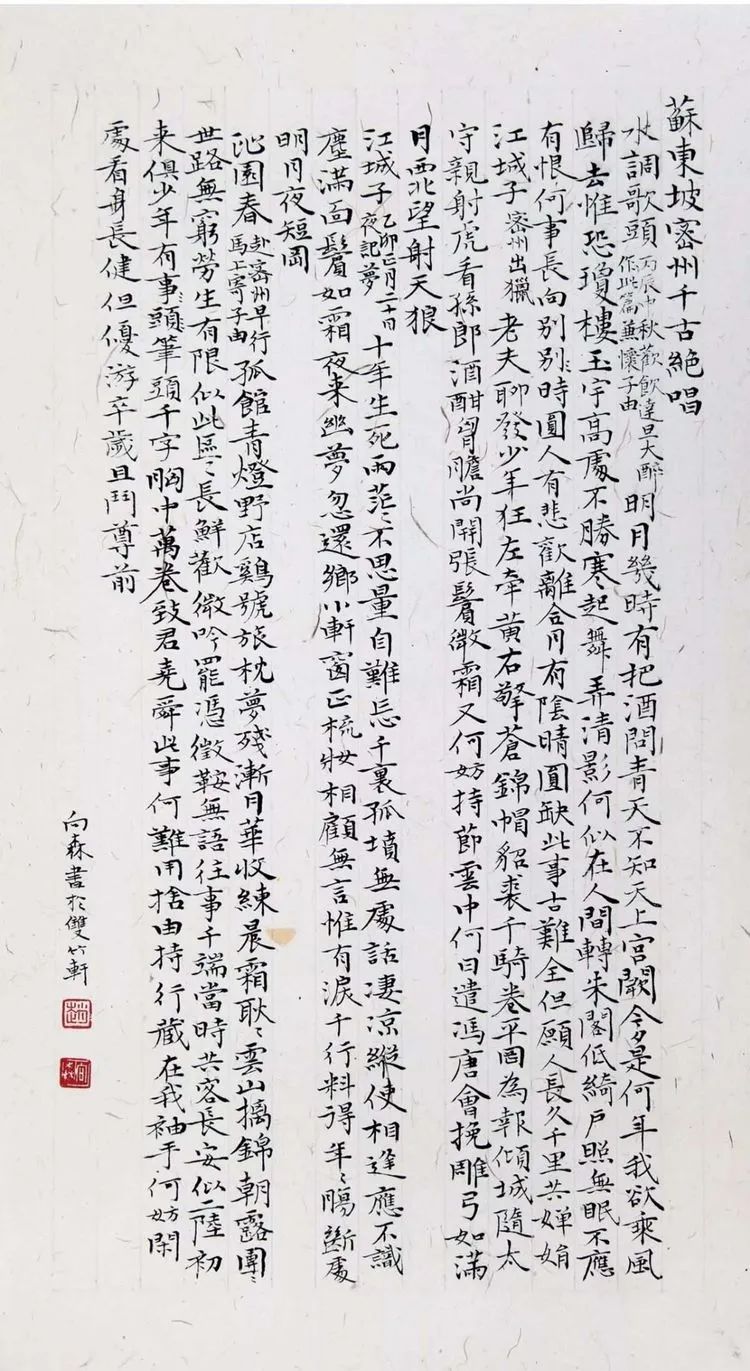 蘇東坡密州千古絶唱
水調歌頭 丙辰中秋歡飲達旦大醉作此篇兼懷子由 明月幾時有把酒問青天不知天上宮闕今夕是何年我欲乘風
歸去惟恐瓊樓玉宇高處不勝寒起舞弄清影何似在人間轉朱閣低綺户照無眠不應
有恨何事長向别别時圓人有悲歡離合月有陰晴圓缺此事古難全但願人長久千里共嬋娟
江城子 密州出獵 老夫聊發少年狂左牽黄右擎蒼錦帽貂裘千騎卷平岡為報傾城隨太
守親射虎看孫郎酒酣胷膽尚開張鬢微霜又何妨持節雲中何日遣馮唐會挽雕弓如滿
月西北望射天狼
江城子 乙卯正月二十日夜記夢 十年生死兩茫〻不思量自難忘千裏孤墳無處話凄凉縱使相逢應不識
塵滿面鬢如霜夜来幽夢忽還鄉小軒窗正梳妝相顧無言惟有淚千行料得年〻腸斷處
明月夜短岡
沁園春 赴密州早行馬上寄子由 孤館青燈野店鷄號旅枕夢殘漸月華收練晨霜耿〻雲山摛錦朝露團〻
世路無窮勞生有限似此區〻長鮮歡微吟罷憑徵鞍無語往事千端當時共客長安似二陸初
来俱少年有事頭筆頭千字胸中萬卷致君堯舜此事何難用捨由持行藏在我袖手何妨閑
處看身長健但優游卒歲且鬥尊前
向森書於雙竹軒
趙
向森